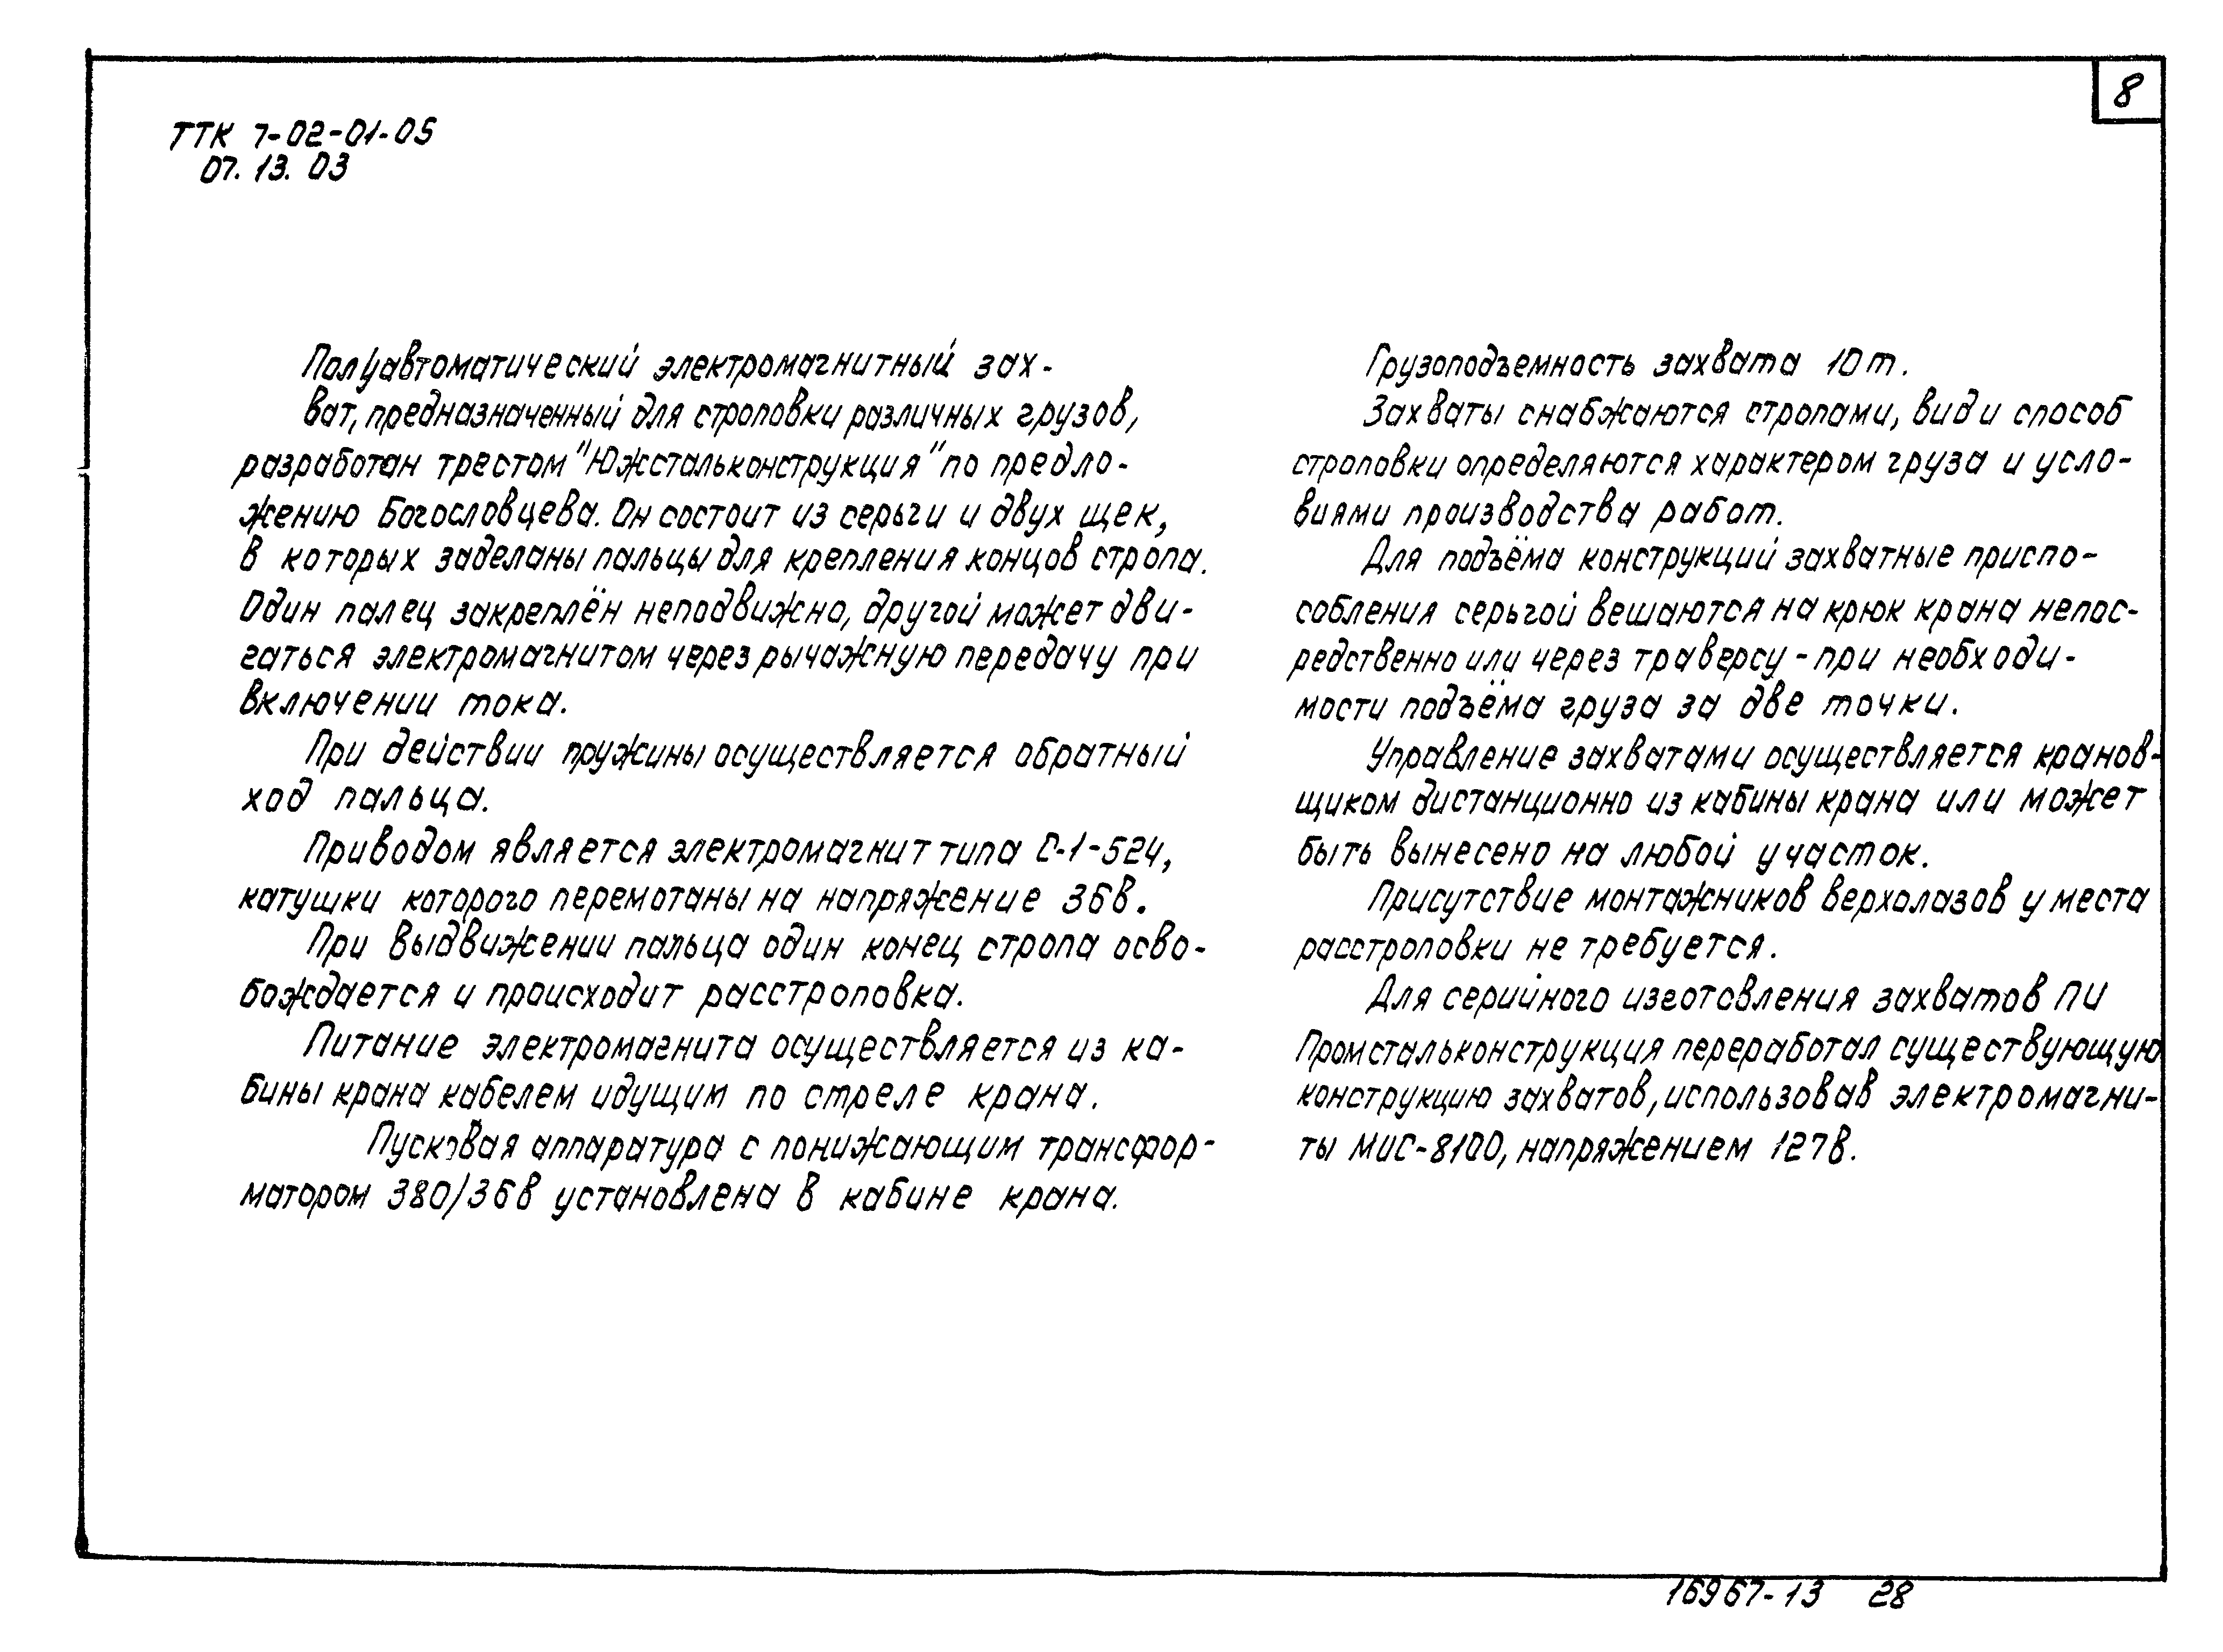 8
ТТК 7-02-01-05
07.13.03
Полуавтоматический электромагнитный зах-
ват, предназначенный для строповки различных грузов,
разработан трестом "Южстальконструкция" по предло-
жению Богословцева. Он состоит из серьги и двух щек,
в которых заделаны пальцы для крепления концов стропа.
Один палец закреплён неподвижно, другой может дви-
гаться электромагнитом через рычажную передачу при
включении тока.
При действии пружины осуществляется обратный
ход пальца.
Приводом является электромагнит типа С-1-524,
катушки которого перемотаны на напряжение 36в.
При выдвижении пальца один конец стропа осво-
бождается и происходит расстроповка.
Питание электромагнита осуществляется из ка-
бины крана кабелем идущим по стреле крана.
Пусковая аппаратура с понижающим трансфор-
матором 380/36в установлена в кабине крана.
Грузоподъемность захвата 10т.
Захваты снабжаются стропами, вид и способ
строповки определяются характером груза и усло-
виями производства работ.
Для подъёма конструкций захватные приспо-
собления серьгой вешаются на крюк крана непос-
редственно или через траверсу - при необходи-
мости подъёма груза за две точки.
Управление захватами осуществляется кранов-
щиком дистанционно из кабины крана или может
быть вынесено на любой участок.
Присутствие монтажников верхолазов у места
расстроповки не требуется.
Для серийного изготовления захватов ПИ
Промстальконструкция переработал существующую
конструкцию захватов, использовав электромагни-
ты МИС-8100, напряжением 127в.
16967-13 28